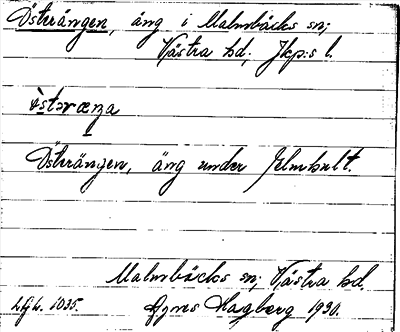 Österängen, äng i Malmbäcks sn;
Västra hd, Jkp:s l.
östəræŋa
Österängen, äng under Jelmhult.
Malmbäcks sn; Västra hd.
1035.
Agnes Hagberg 1930.